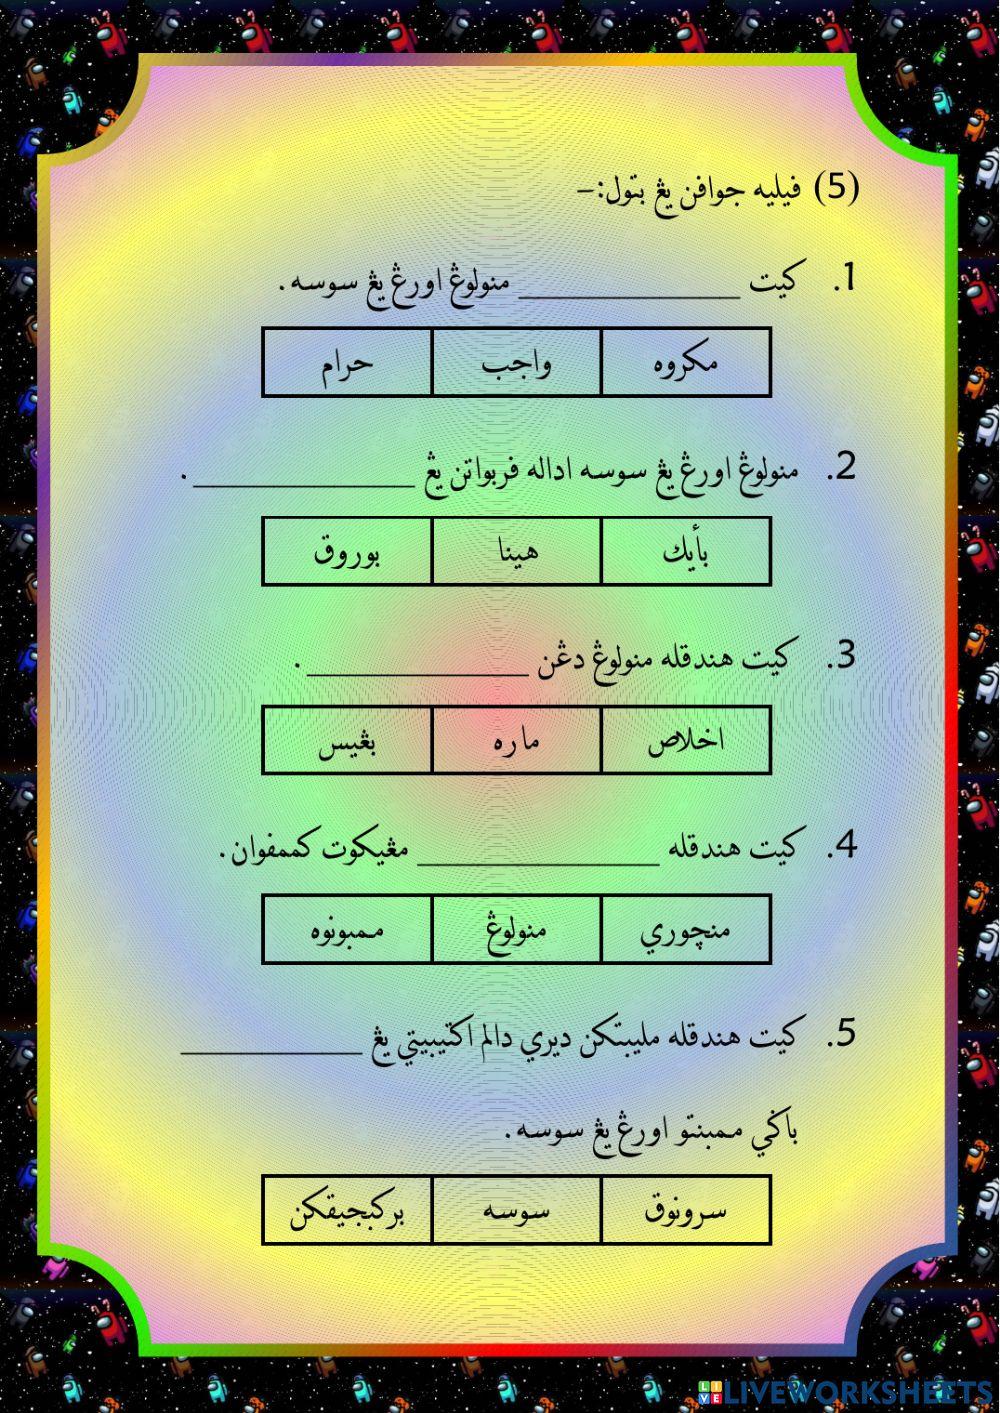 (5) ڤيليه جواڤن يڠ بتول:-
1. كيت ____________ منولوڠ اورڠ يڠ سوسه.
مكروه واجب حرام
2. منولوڠ اورڠ يڠ سوسه اداله ڤربواتن يڠ ____________.
بأيك هينا بوروق
3. كيت هندقله منولوڠ دڠن ____________.
اخلاص ماره بڠيس
4. كيت هندقله ____________ مڠيكوت كممڤوان.
منچوري منولوڠ ممبونوه
5. كيت هندقله مليبتكن ديري دالم اکتيبيتي يڠ __________
باݢي ممبنتو اورڠ يڠ سوسه.
سرونوق سوسه بركبجيقكن
LIVEWORKSHEETS